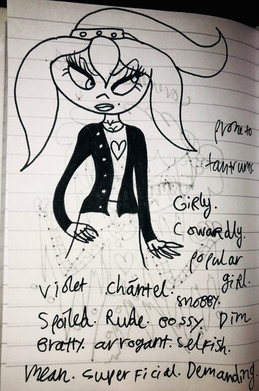 prone to
tantrums
Girly.
Cowardly
popular
girl.
Violet chantel.
snobby.
Spoiled. Rude. Bossy. Dim
Bratty. arrogant. selfish.
mean. superficial. Demanding.